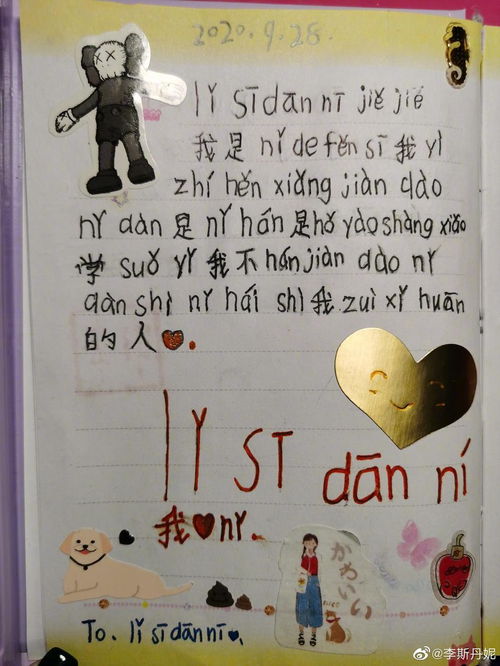 2020.9.28.
lǐ sī dān nī jiě jiě
我是nǐ de fěn sī我yì
zhí hěn xiǎng jiàn dào
nǐ dàn是nǐ hán是hǒ yào shàng xiǎo
学suǒ yǐ我不hán jiàn dào nǐ
dàn shì nǐ hái shì我zuì xǐ huān
的人.
lǐ sī dān ní
我nǐ.
かわいい
To. lǐ sī dān nī
@李斯丹妮